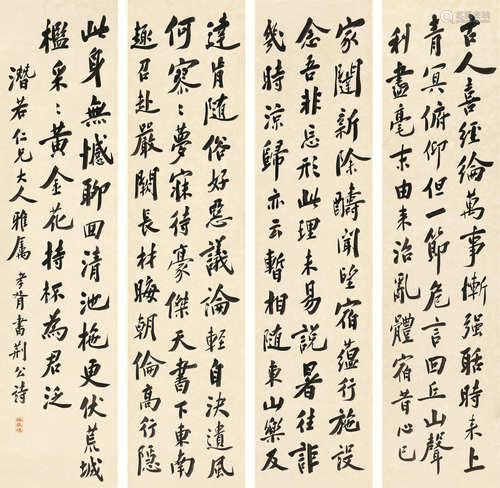 古人喜經綸萬事慚强聒時来上
青冥俯仰但一節危言回丘山聲
利盡毫末由来治亂體宿昔心已
家閥新除疇聞望宿蘊行施設
念吾非忘形此理未易說暑往詎
幾時涼歸亦云暫相隨東山樂及
達肯随俗好惡議論輕自決遺風
何寥〻夢寐待豪傑天書下東南
趣召赴嚴闕長材晦朝倫高行隱
此身無憾聊回清池拖更伏荒城
檻采〻黃金花持杯為君泛
潛若仁兄大人雅属 孝胥書荆公詩